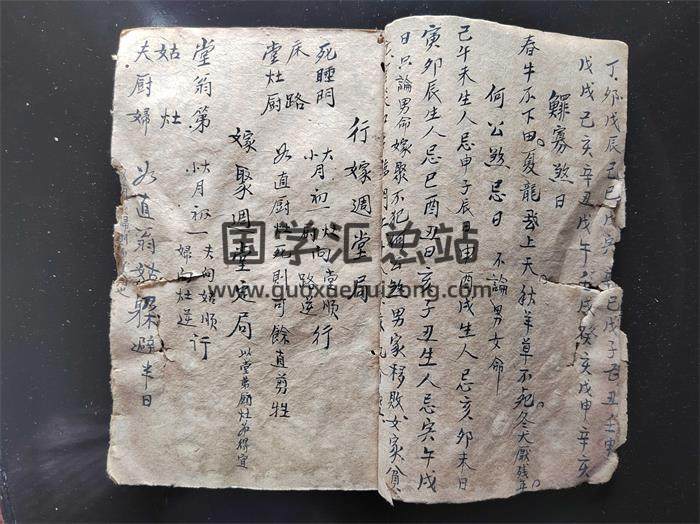 丁卯戊辰己巳戊寅辛巳戊子己丑壬寅
戊戌己亥辛丑戊午壬戌癸亥戊申辛亥
鰥寡煞日
春牛不下田。夏龍飛上天。秋羊草不死。冬犬厭殘年。
何公煞忌日 不論男女命
巳午未生人忌申子辰日申酉戌生人忌亥卯未日
寅卯辰生人忌巳酉丑日亥子丑生人忌寅午戌
日只論男命嫁娶不犯翁公煞男家移敗女家貧
行嫁週堂局
死睡門
床 路
堂灶厨
大月初一灶向堂順行
小月初一厨向路逆
如直厨灶死則可餘直剪牲
嫁娶週堂定局 以堂第厨灶为得宜
堂翁第
姑 灶
夫厨婦
大月初一夫向姑順行
小月初一婦向灶逆
如直翁姑躱避半日
国学汇总站
www.guoxuehuizong.com